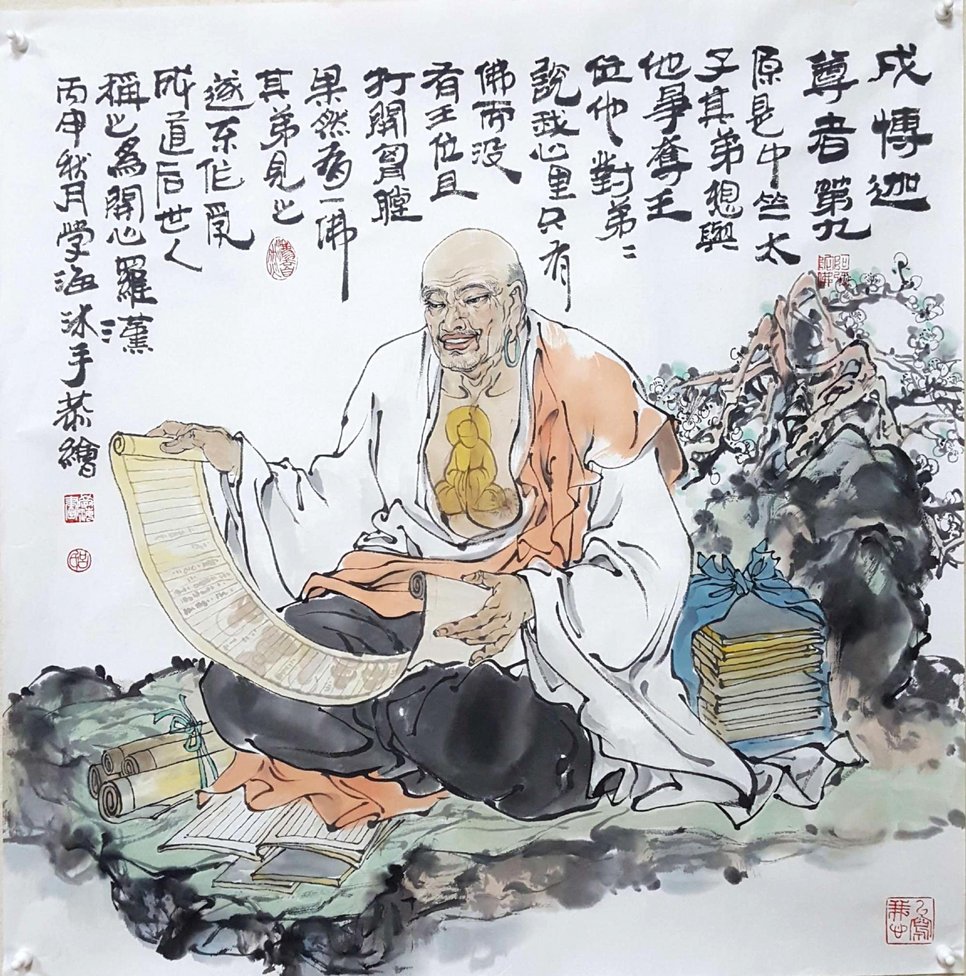 戍博迦
尊者第九
原是中竺太
子其弟想與
他爭奪王
位他對弟〻
說我心里只有
佛而没
有王位且
打開胷膛
果然有一佛
其弟見之
遂不作乱
成道后世人
稱之為開心羅漢
丙申秋月學海沐手恭繪